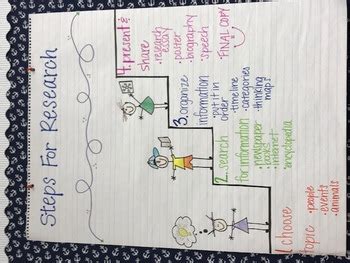 Steps For Research
4. present &
share
• research
essay
• poster
• biography
• speech
*FINAL COPY*
3. organize
information
• put it in
order
• timeline
• categories
• thinking
maps
2. search
for information
• newspaper
• books
• internet
• encyclopedia
1. choose
topic
• people
• events
• animals